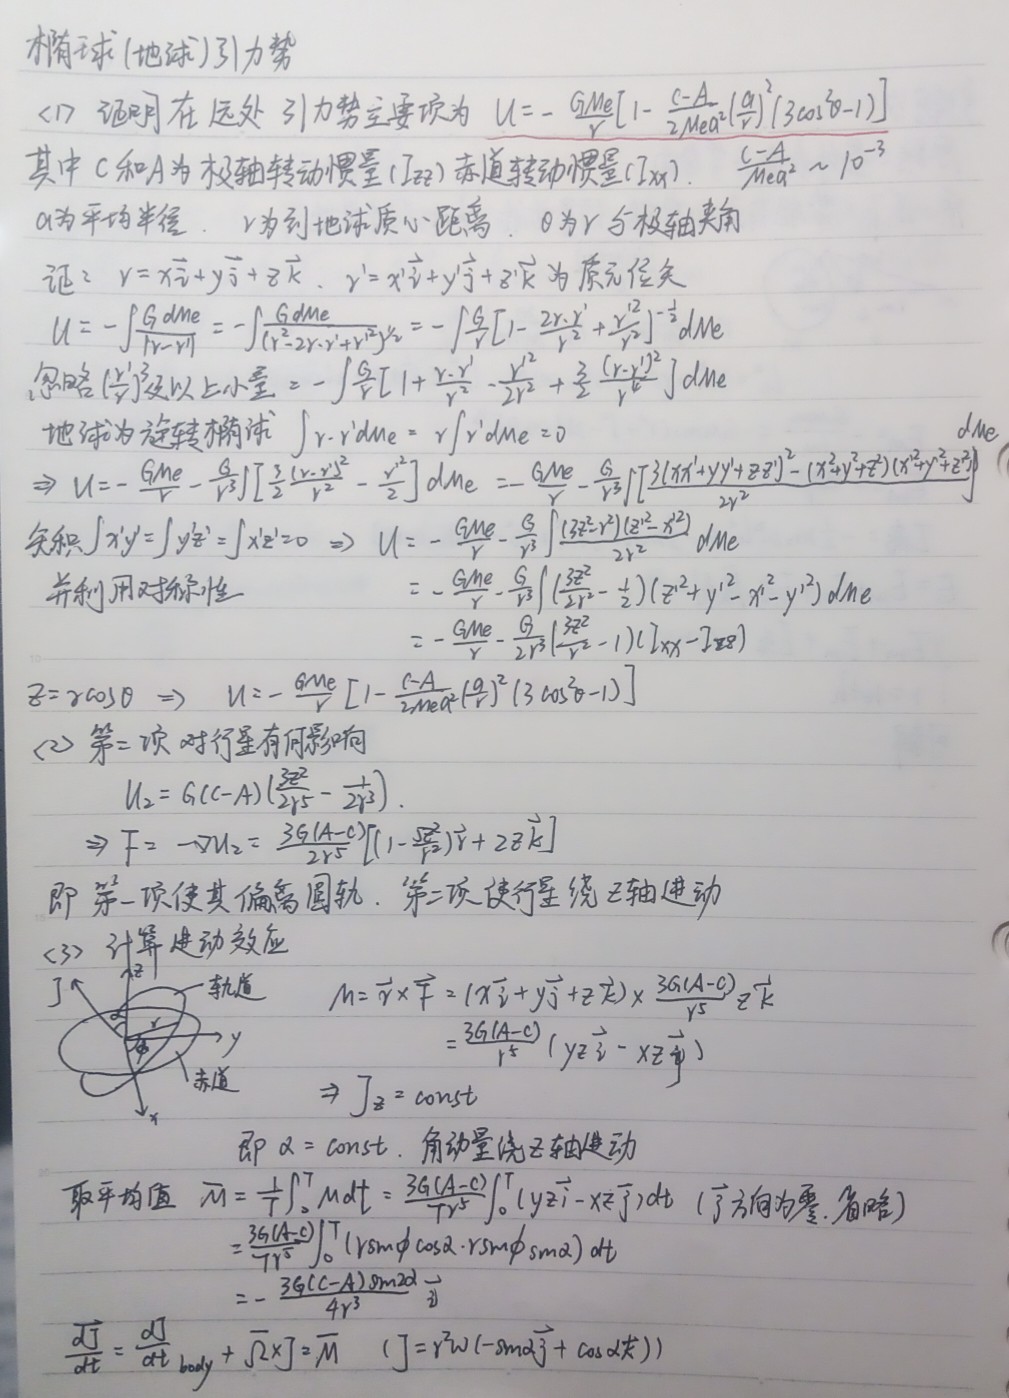 椭球(地球)引力势
<1> 证明在远处引力势主要项为 U = - GMe/r [1 - (C-A)/(2Mea²) (a/r)² (3cos²θ-1)]
其中C和A为极轴转动惯量(Izz)赤道转动惯量(Ixx). (C-A)/(Mea²) ~ 10⁻³
a为平均半径. r为到地球质心距离. θ为r与极轴夹角
证: r = xi⃗+yj⃗+zk⃗. r' = x'i⃗+y'j⃗+z'k⃗ 为质元位矢
U = -∫ GdMe/|r-r'| = -∫ GdMe/(r²-2r·r'+r'²)^(1/2) = -∫ G/r [1 - 2r·r'/r² + r'²/r²]^(-1/2) dMe
忽略(r'/r)³及以上小量 = -∫ G/r [1 + r·r'/r² - r'²/2r² + 3/2 (r·r')²/r⁴] dMe
地球为旋转椭球 ∫r·r'dMe = r∫r'dMe = 0
⇒ U = - GMe/r - G/r³ ∫[3/2 (r·r')²/r² - r'²/2] dMe = - GMe/r - G/r³ ∫[(3(xx'+yy'+zz')² - (x²+y²+z²)(x'²+y'²+z'²))/2r²] dMe
矢积∫x'y' = ∫y'z' = ∫x'z' = 0 ⇒ U = - GMe/r - G/r³ ∫ (3z²-r²)(z'²-x'²)/2r² dMe
并利用对称性 = - GMe/r - G/r³ ∫(3z²/2r² - 1/2)(z'²+y'²-x'²-y'²) dMe
= - GMe/r - G/2r³ (3z²/r² - 1)(Ixx-Izz)
z = rcosθ ⇒ U = - GMe/r [1 - (C-A)/(2Mea²) (a/r)² (3cos²θ-1)]
<2> 第二项对行星有何影响
U₂ = G(C-A)(3z²/2r⁵ - 1/2r³).
⇒ F = -∇U₂ = 3G(A-C)/2r⁵ [(1 - 5z²/r²)r⃗ + 2zk⃗]
即第一项使其偏离圆轨. 第二项使行星绕z轴进动
<3> 计算进动效应
z
J
轨道
α
r
φ
y
赤道
x
M = r⃗×F⃗ = (xi⃗+yj⃗+zk⃗) × 3G(A-C)/r⁵ zk⃗
= 3G(A-C)/r⁵ (yzi⃗ - xzj⃗)
⇒ Jz = const
即 α = const. 角动量绕z轴进动
取平均值 M̄ = 1/T ∫₀ᵀ Mdt = 3G(A-C)/Tr⁵ ∫₀ᵀ (yzi⃗ - xzj⃗)dt (j⃗方向为零.省略)
= 3G(A-C)/Tr⁵ ∫₀ᵀ (rsinφcosα·rsinφsinα) dt
= - 3G(C-A)sin2α/4r³ i⃗
dJ⃗/dt = dJ/dt body + Ω̄×J = M̄ (J = r²ω(-sinαj⃗ + cosαk⃗))